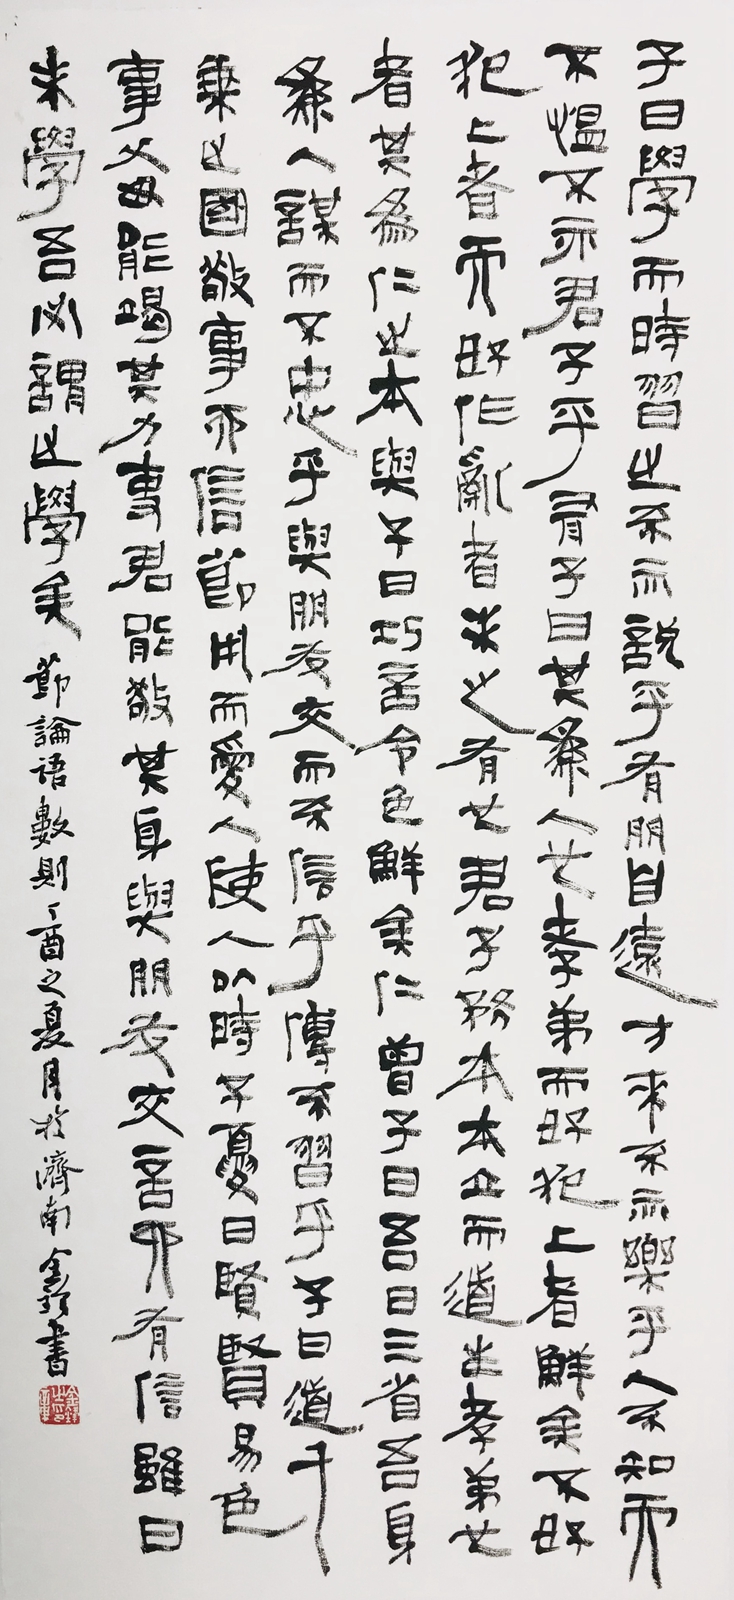 子曰學而時習之不亦說乎有朋自遠方來不亦樂乎人不知而
不慍不亦君子乎有子曰其為人也孝弟而好犯上者鮮矣不好
犯上者而好作亂者未之有也君子務本本立而道生孝弟也
者其為仁之本與子曰巧言令色鮮矣仁曾子曰吾日三省吾身
為人謀而不忠乎與朋友交而不信乎傳不習乎子曰道千
乘之國敬事而信節用而愛人使人以時子夏曰賢賢易色
事父母能竭其力事君能致其身與朋友交言而有信雖曰
未學吾必謂之學矣 節論語數則丁酉之夏月於濟南金書